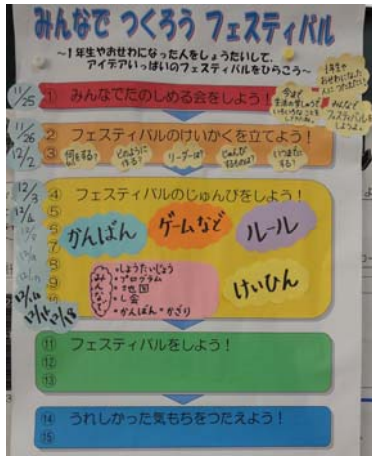 みんなで つくろう フェスティバル
～1年生やおせわになった人をしょうたいして、
アイデアいっぱいのフェスティバルをひらこう～
11/25
① みんなでたのしめる会をしよう!
1年生や
おせわになった
人に
みんなで
フェスティバルを
しようよ。
今まで
生活の学しゅうで
11/26
② フェスティバルのけいかくを立てよう!
12/2
③
何をする?
どのように
作る?
リーダーは?
じゅんび
するものは?
いつまでに
する?
12/3
④ フェスティバルのじゅんびをしよう!
12/4
⑤
⑥
⑦
⑧
⑨
かんばん
ゲームなど
ルール
みんなで
・しょうたいじょう
・プログラム
・地図
・し会
・かんばん・かざり
けいひん
12/16
12/17
12/18
⑪ フェスティバルをしよう!
⑫
⑬
⑭ うれしかった気もちをつたえよう!
⑮